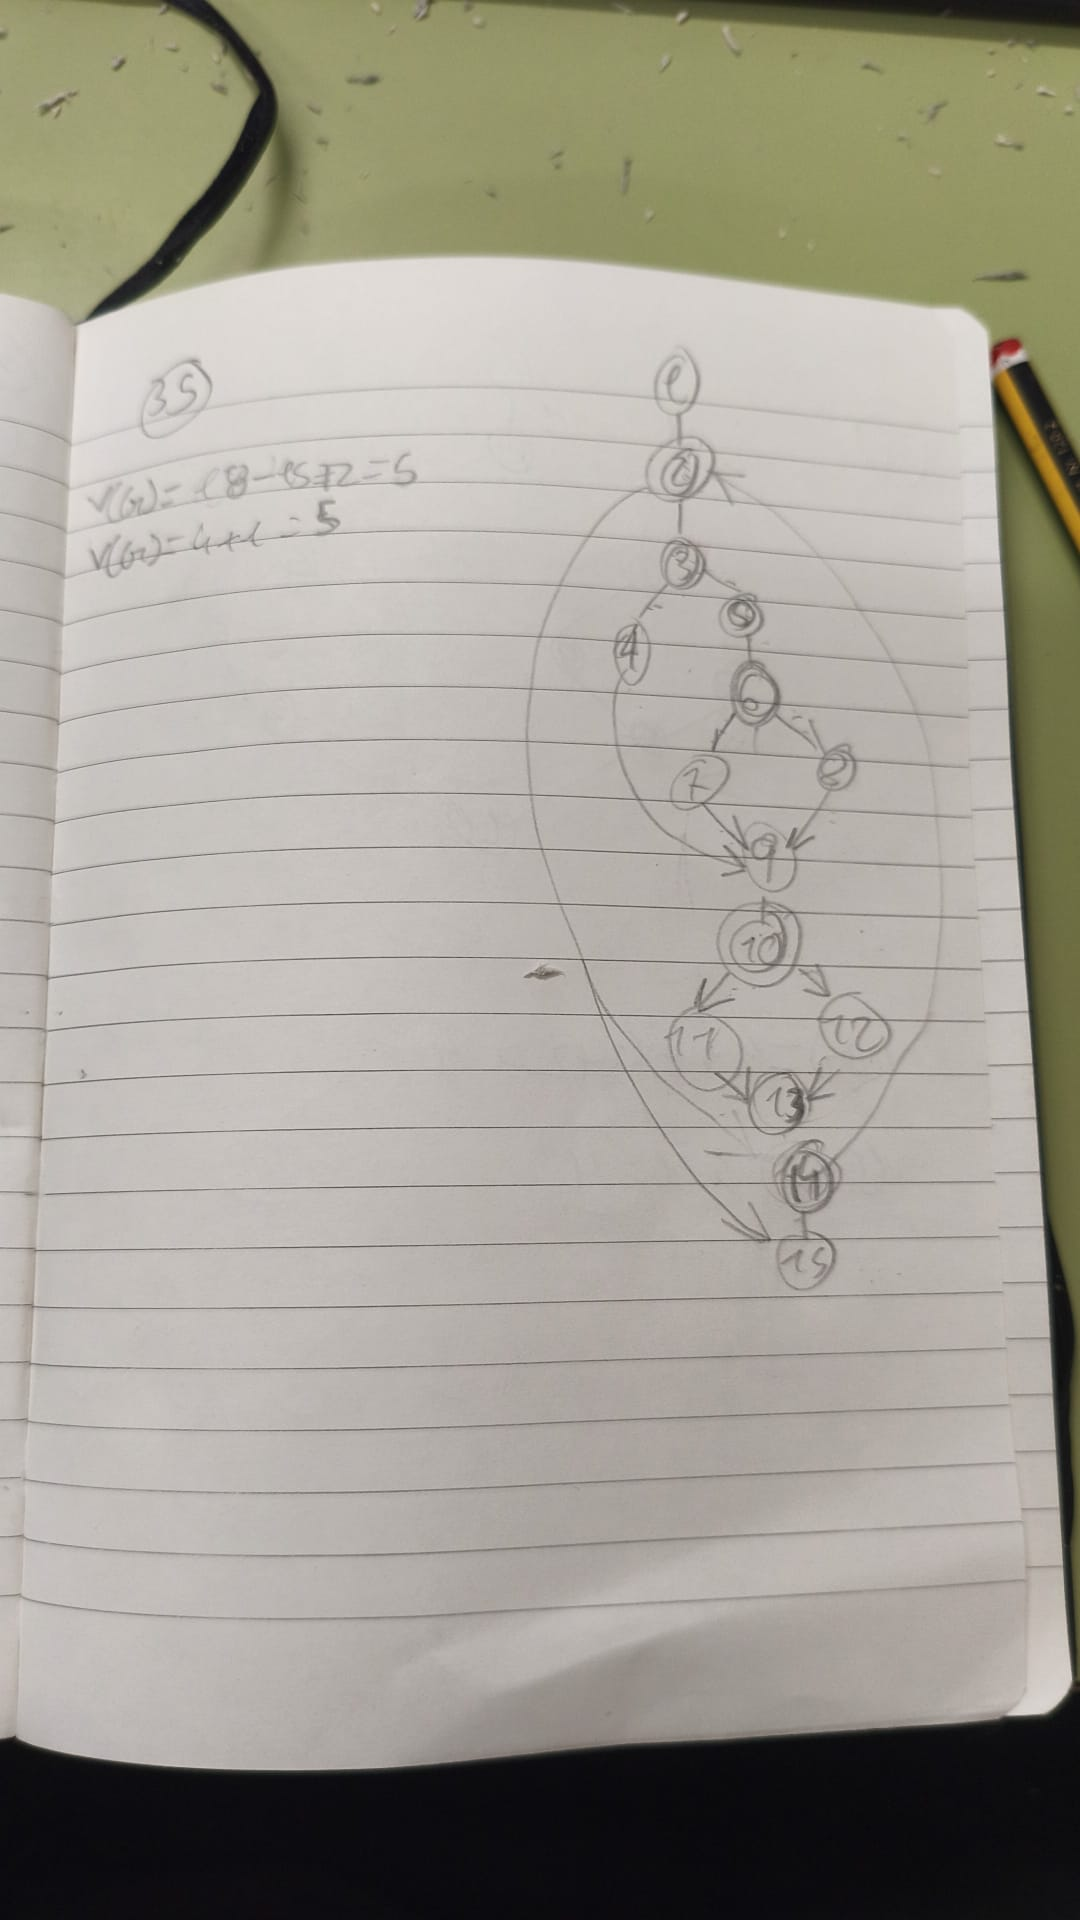 35
V(G)= 18-15+2=5
V(G)=4+1=5
1
2
3
5
4
6
7
8
9
10
11
12
13
14
15